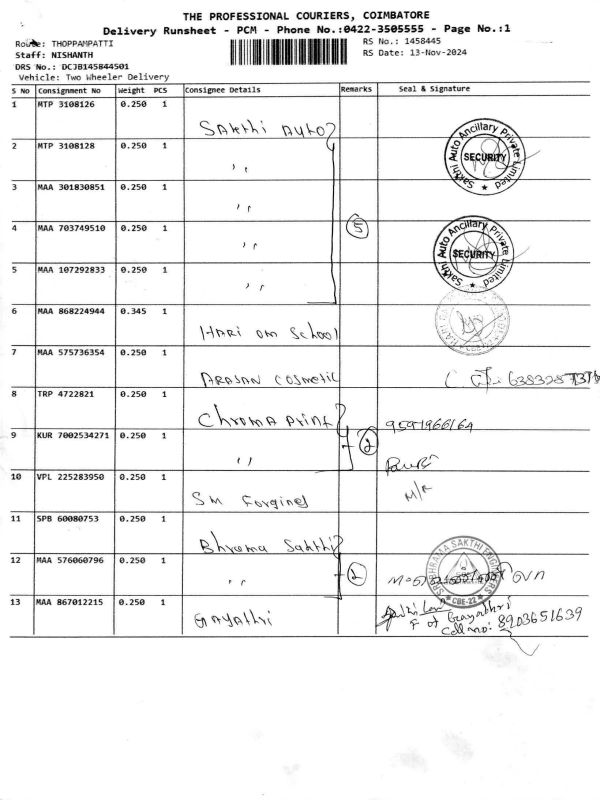 THE PROFESSIONAL COURIERS, COIMBATORE
Delivery Runsheet - PCM - Phone No.:0422-3505555 - Page No.:1
Route: THOPPAMPATTI
RS No.: 1458445
Staff: NISHANTH
RS Date: 13-Nov-2024
DRS No.: DCJB145844501
Vehicle: Two Wheeler Delivery
S No Consignment No Weight PCS Consignee Details Remarks Seal & Signature
1 MTP 3108126 0.250 1 Sakthi Auto
2 MTP 3108128 0.250 1 ,,
Sakthi Auto Ancillary Private Limited
SECURITY
3 MAA 301830851 0.250 1 ,,
4 MAA 703749510 0.250 1 ,, 5
5 MAA 107292833 0.250 1 ,,
Sakthi Auto Ancillary Private Limited
SECURITY
6 MAA 868224944 0.345 1 HARi om School
7 MAA 575736354 0.250 1 ARASAN Cosmetic
8 TRP 4722821 0.250 1 Chroma print 9591966164
9 KUR 7002534271 0.250 1 ,, 2
10 VPL 225283950 0.250 1 SM Forging M/R
11 SPB 60080753 0.250 1 Bhroma Sakthi
12 MAA 576060796 0.250 1 ,, 2
SAKTHI ENGINEERS
CBE-22
13 MAA 867012215 0.250 1 GAyAthri
F of Gayathri
Cell no: 8903651639